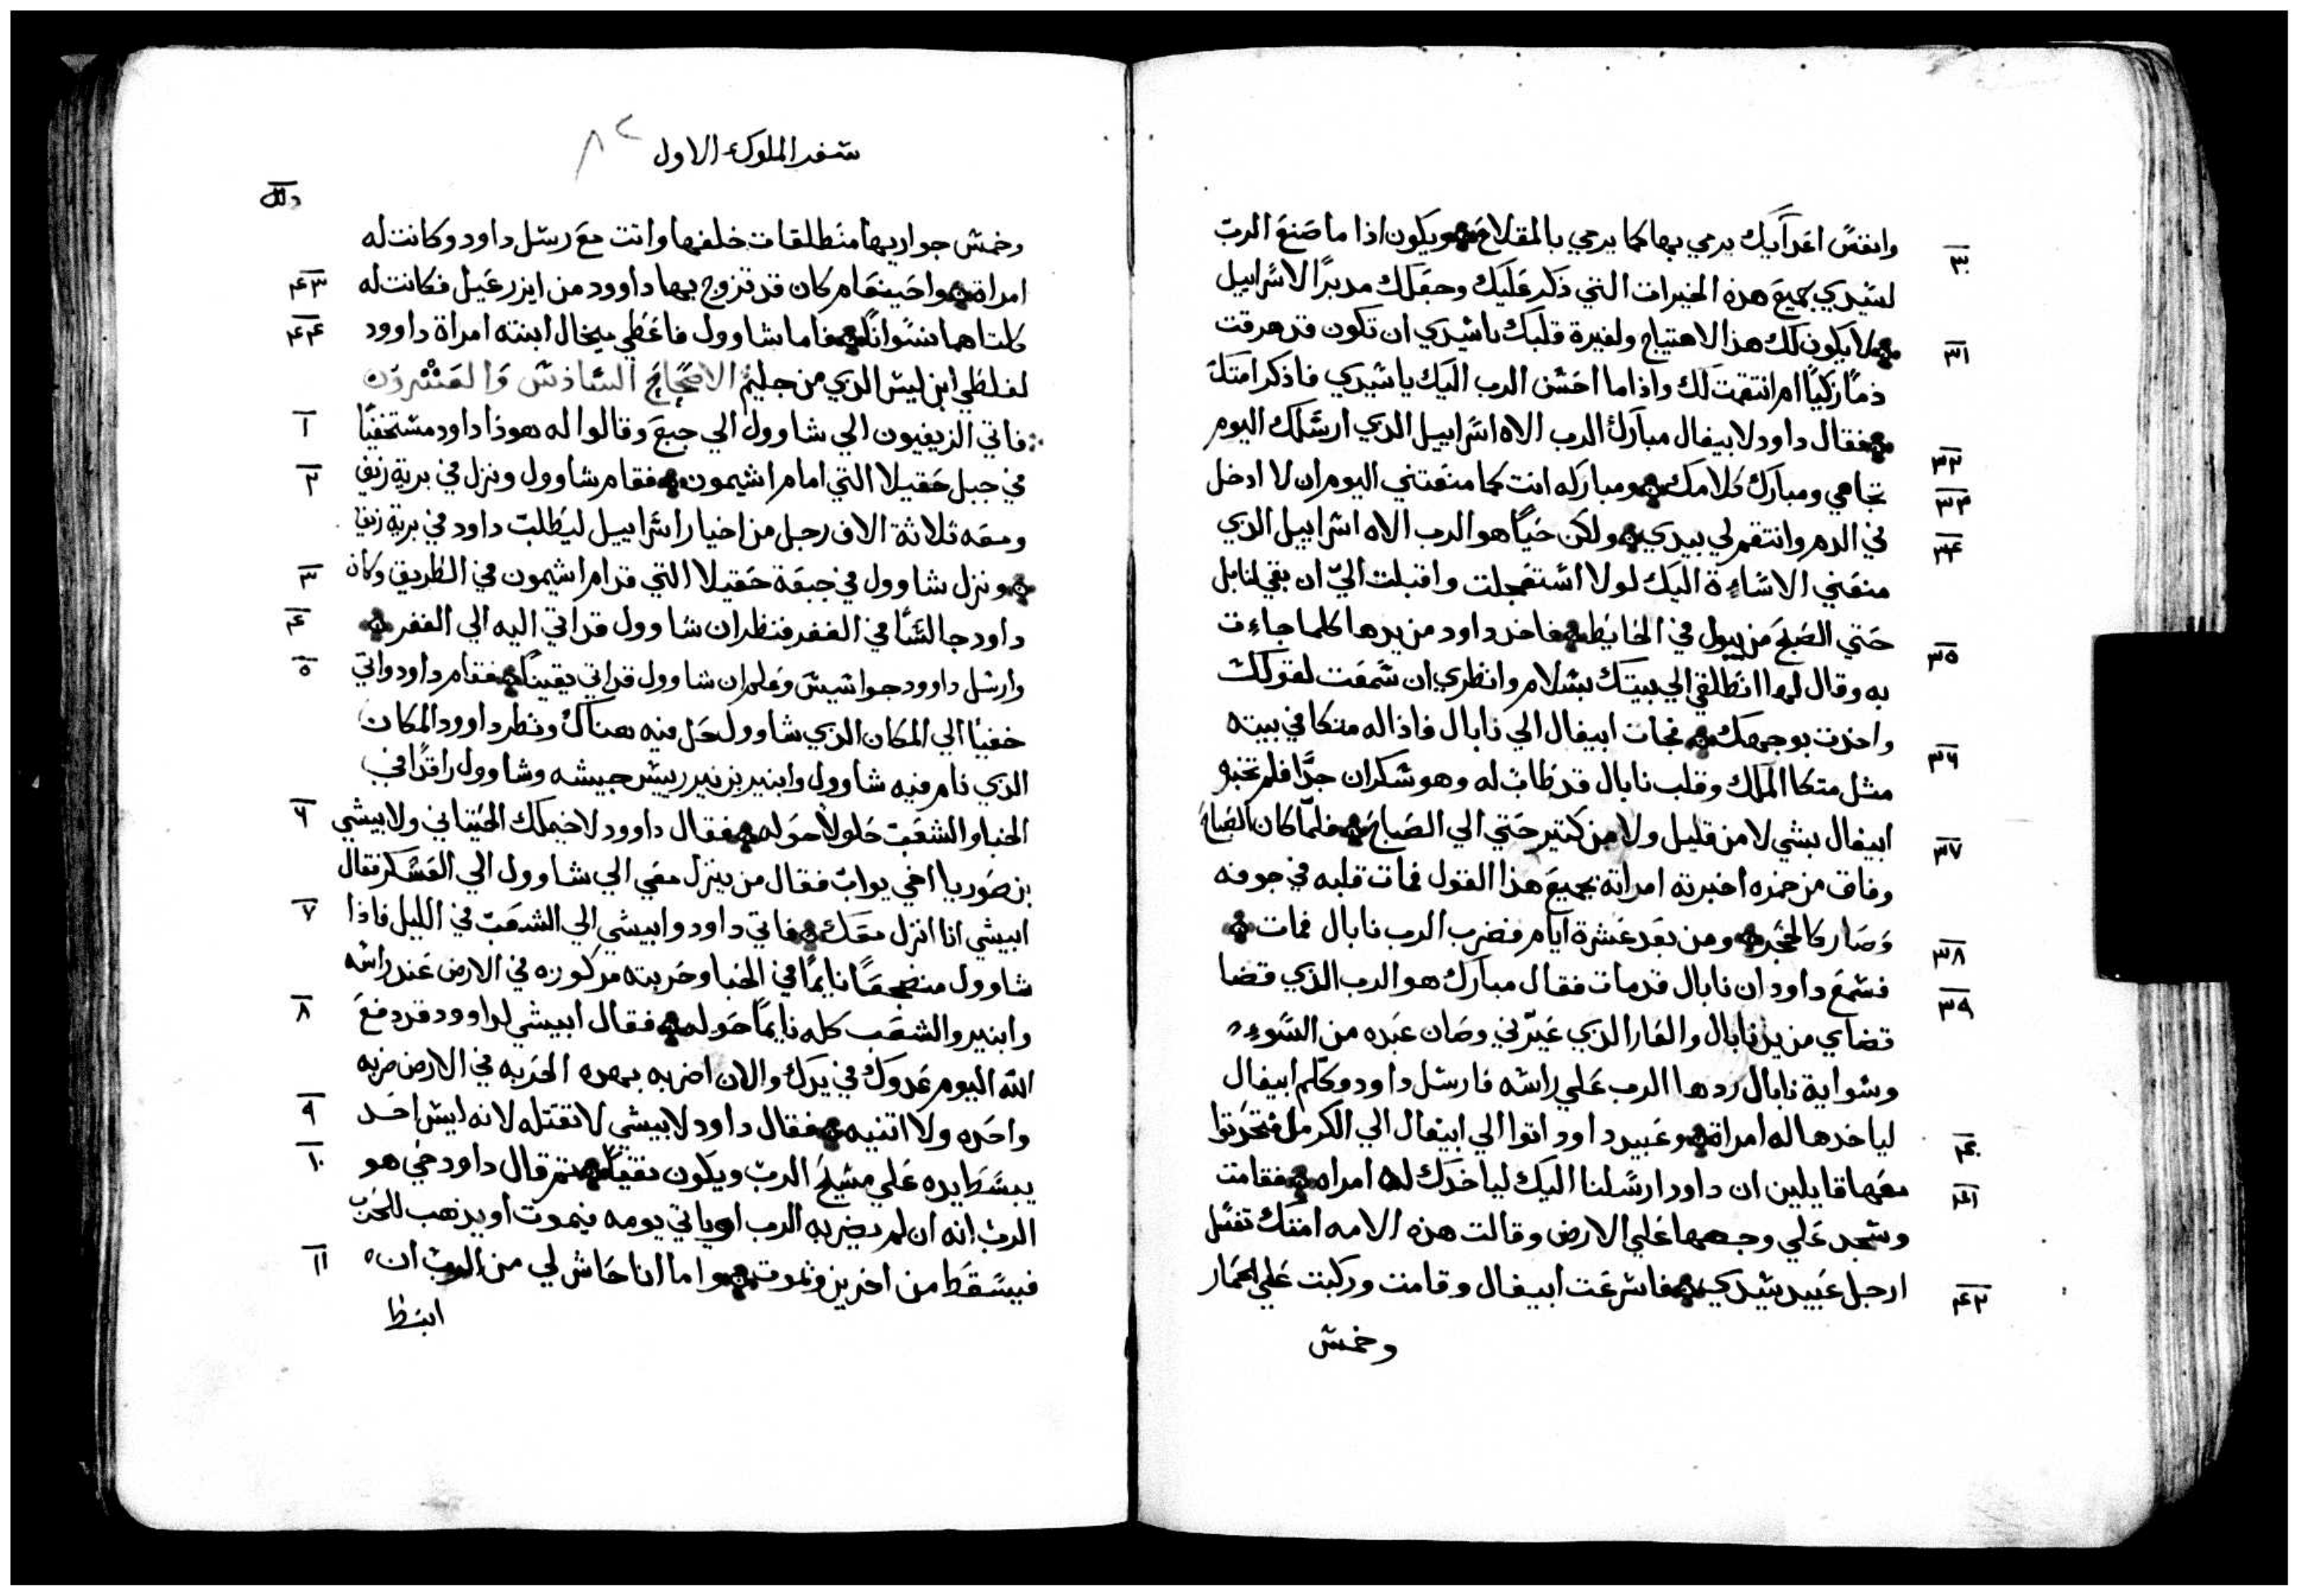 وانفسً اعَدآيك يرمي بها كما يرمي بالمقلاع ويكون اذا ما صَنعَ الربّ
٣٠
لسَيدي بجميعَ هذه الخيرات التي ذكر عَليك وجعَلك مدبرًا لاسَراييل
لا يكون لك هذا الاهتياج ولغيرة قلبك يا سَيدي ان تكون قد هرقت
٣١
دمًا زكيًا ام انتقمت لك واذا ما احسَن الرب اليَك يا سَيدي فاذكر امتك
فقال داود لابيغال مبارك الرب الاه اسَراييل الذي ارسَلك اليوم
٣٢
تجاهي ومبارك كلامك ومباركه انت كما منعَتني اليوم ان لا ادخل
٣٣
في الدم وانتقم لي بيدي ولكن حَيًا هو الرب الاه اسراييل الذي
٣٤
منعَني الاسَاءة اليَك لولا استعَجلت واقبلت اليّ ان بقي لنابل
حَتي الصَبحَ من يبول في الحَايط فاخذ داود من يدها كلما جاءت
٣٥
به وقال لها انطلقي الي بيتك بسَلام وانظري ان سَمعَت لقولك
واخدت بوجهك فجات ابيغال الي نابال فاذا له متكا في بيته
٣٦
مثل متكا الملك وقلب نابال قد طابَ له وهو سَكران جدًا فلم تخبره
ابيغال بشي لا من قليل ولا من كتير حَتي الي الصَباحَ فلمّا كان الصَباحَ
٣٧
وفاق من خمره اخبرته امراته بجميعَ هذا القول فمات قلبه في جوفه
وَصَار كالحَجَر ومن بعَد عَشرة ايام فضرب الرب نابال فمات
٣٨
فسَمعَ داود ان نابال قد مات فقال مبارك هو الرب الذي قضا
٣٩
قضاي من يد نابال والعَار الذي عَيّرني وصَان عَبده من السَوء
وسَواية نابال ردها الرب عَلي راسَه فارسَل داود وكلم ابيغال
لياخدها له امراة وعَبيد داود اتوا الي ابيغال الي الكرمل فتحَدتوا
٤٠
معَها قايلين ان داود ارسَلنا اليك لياخدك له امراه فقامت
٤١
وسَجد عَلي وجهها عَلي الارض وقالت هذه الامه امتك تغسَل
ارجل عَبيد سَيدي فاسَرعَت ابيغال وقامت وركبت عَلي الحَمار
٤٢
وخمسَ
سَفر الملوك الاول
٨٢
وخمسَ جواريها منَطلقات خلفها واتت معَ رسَل داود وكانت له
امراة واحَينعَام كان قد تزوج بها داوود من ايزرعَيل فكانت له
٤٣
كلتاهما نسَوانًا فاما شاوول فاعَطي ميخال ابنته امراة داوود
٤٤
لفلطي ابن ليسَ الذي من جليم الاصحَاحَ السَادسَ وَالعَشرون
فاتي الزيفيون الي شاوول الي جبعَ وقالوا له هوذا داود مستخفيًا
١
في جبل حَقيلا التي امام اشيمون فقام شاوول ونزل في برية زيف
٢
ومعَه ثلاثة الاف رجل من اخيار اسَراييل ليَطلبَ داود في برية زيف
ونزل شاوول في جبعَة حَقيلا التي قدام اشيمون في الطريق وكان
٣
داود جالسًا في القفر فنظر ان شاوول قد اتي اليه الي القفر
٤
وارسَل داوود جواسَيسَ وعَلم ان شاوول قد اتي يقينًا فقام داود واتي
٥
خفيًا الي المكان الذي شاوول حَل فيه هناك ونظر داوود المكان
الذي نام فيه شاوول وابنير بن نير رييسَ جيشه وشاوول راقدًا في
الخبا والشعَبَ حَلولًا حَوله فقال داوود لاخيملك الحَيتاني ولابيشي
٦
بن صَوريا اخي يوابَ فقال من ينزل معَي الي شاوول الي العَسَكر فقال
ابيشي انا انزل معَك فاتي داود وابيشي الي الشعَبَ في الليل فاذا
٧
شاوول منضجعًا نايمًا في الخبا وحَربته مركوزه في الارض عَند راسَه
وابنير والشعَب كله نايمًا حَوله فقال ابيشي لداوود قد دفعَ
٨
الله اليوم عَدوك في يدك والان اضربه بهده الحَربه في الارض ضربه
واحَده ولا اتنيه فقال داود لابيشي لا تقتله لانه ليسَ احَد
٩
يبسَط ايده عَلي مسَيحَ الربّ ويكون نقيًا تم قال داود حَي هو
١٠
الربّ انه ان لم يضربه الرب او ياتي يومه فيموت او يذهب للحَرب
فيسَقط من اخرين ويموت واما انا حَاش لي من الربّ ان
١١
ابسَط